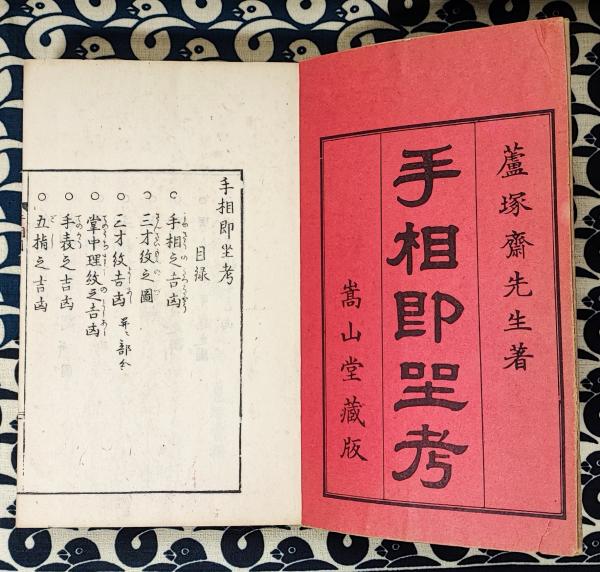 蘆塚齋先生著
手相即坐考
嵩山堂藏版
手相即坐考
目録
手相之吉凶
三才紋之圖
三才紋吉凶
掌中理紋之吉凶
手表之吉凶
五指之吉凶